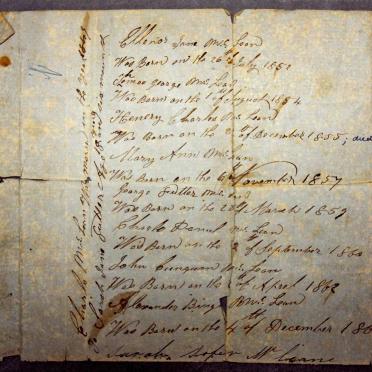 Ellenor Jane McLean
Was Born on the 26th July 1852
James George McLean
Was Born on the 1 August 1854
Henery Charles McLean
Was Born on the 2 of December 1855; died
Mary Ann McLean
Was Born on the 6 November 1857
George Fuller McLean
Was Born on the 22 March 1859
Charls Daniel McLean
Was Born on the 2 of September 1860
John McLean
Was Born on the of April 1862
Alexander Bing McLean
Was Born on the 4th of December 186
Sarah McLean
Charls McLean in the
Sarah Jane Fuller